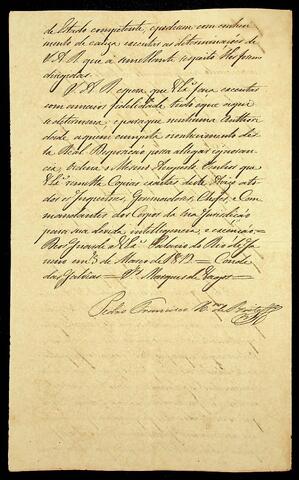 de Estado competente, e poderam com conheci
mento de cauza executar as determinaçoens de
S. A. R. que á similhante respeito lhes forem
dirigidas.
S. A. R. espera que V. Ex.ª fará executar
com a maior fidelidade tudo o que aqui
se determina, e para que nenhuma Authori
dade a quem cumpre o conhecimento des
ta Real Disposição possa allegar ignoran
cia, Ordena o Mesmo Augusto Senhor que
V. Ex.ª remetta Copias exactas deste Avizo a to
dos os Inspectores, Governadores, Chefes, e Com
mandantes dos Corpos da sua Jurisdição
para sua devida intelligencia, e execução =
Deos Guarde a V. Ex.ª Palacio do Rio de Ja
neiro em 3 de Março de 1812 = Conde
das Galvêas = S.r Marquez de Lagos =
Pedro Francisco